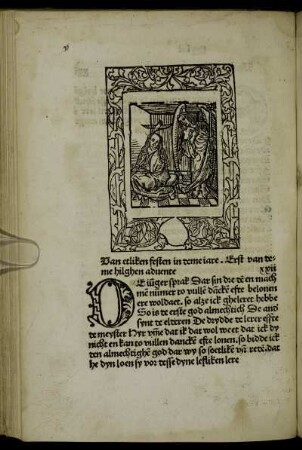 Van etliken festen in deme iare. Erst van de-
me hilghen aduente
xxiii
DE iu̇ger sprak Dar sin dre dē en mach
mē nūmer to vullē dāckē efte belonen
ere woldaet. so alze ick ghelerer hebbe
So is de erste god almechtich De and
synt de elderen De drydde de lerer effte
de meyster Hyr vm̄e dat ik dat wol weet dat ick dy
nicht en kan to vullen danckē efte lonen. so bidde ick
den almechtighē god dar wy so soetlikē vā redē. dat
he dyn loen sy vor desse dyne lefliken lere